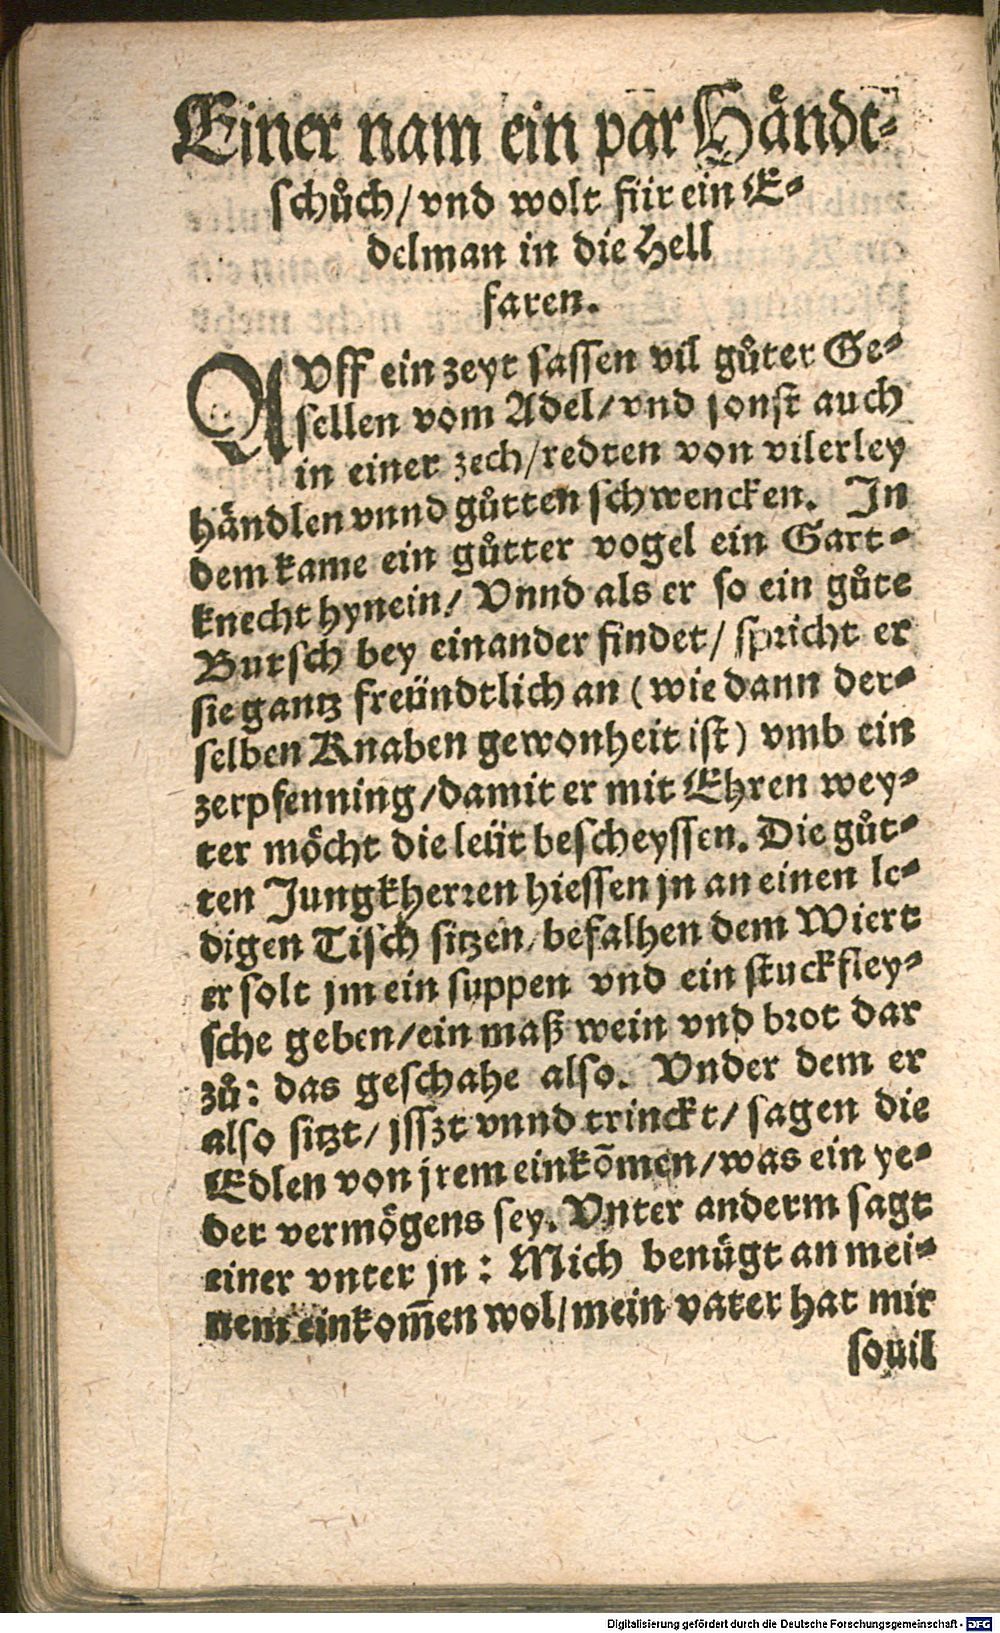 Einer nam ein par Håndt-
schůch/ vnd wolt für ein E-
delman in die Hell
faren.
AVff ein zeyt sassen vil gůter Ge-
sellen vom Adel/ vnd sonst auch
in einer zech/ redten von vilerley
händlen vnnd gůtten schwencken. In
dem kame ein gůtter vogel ein Gart-
knecht hynein/ Vnnd als er so ein gůte
Bursch bey einander findet/ spricht er
sie gantz freündtlich an (wie dann der-
selben Knaben gewonheit ist) vmb ein
zerpfenning/ damit er mit Ehren wey-
ter möcht die leüt bescheyssen. Die gůt-
ten Jungkherren hiessen jn an einen le-
digen Tisch sitzen/ befalhen dem Wiert
er solt jm ein suppen vnd ein stuck fley-
sche geben/ ein maß wein vnd brot dar
zů: das geschahe also. Vnder dem er
also sitzt/ jsszt vnnd trinckt/ sagen die
Edlen von jrem einkōmen/ was ein ye-
der vermögens sey. Vnter anderm sagt
einer vnter jn: Mich benügt an mei-
nem einkom̄en wol/ mein vater hat mir
souil
Digitalisierung gefördert durch die Deutsche Forschungsgemeinschaft - DFG